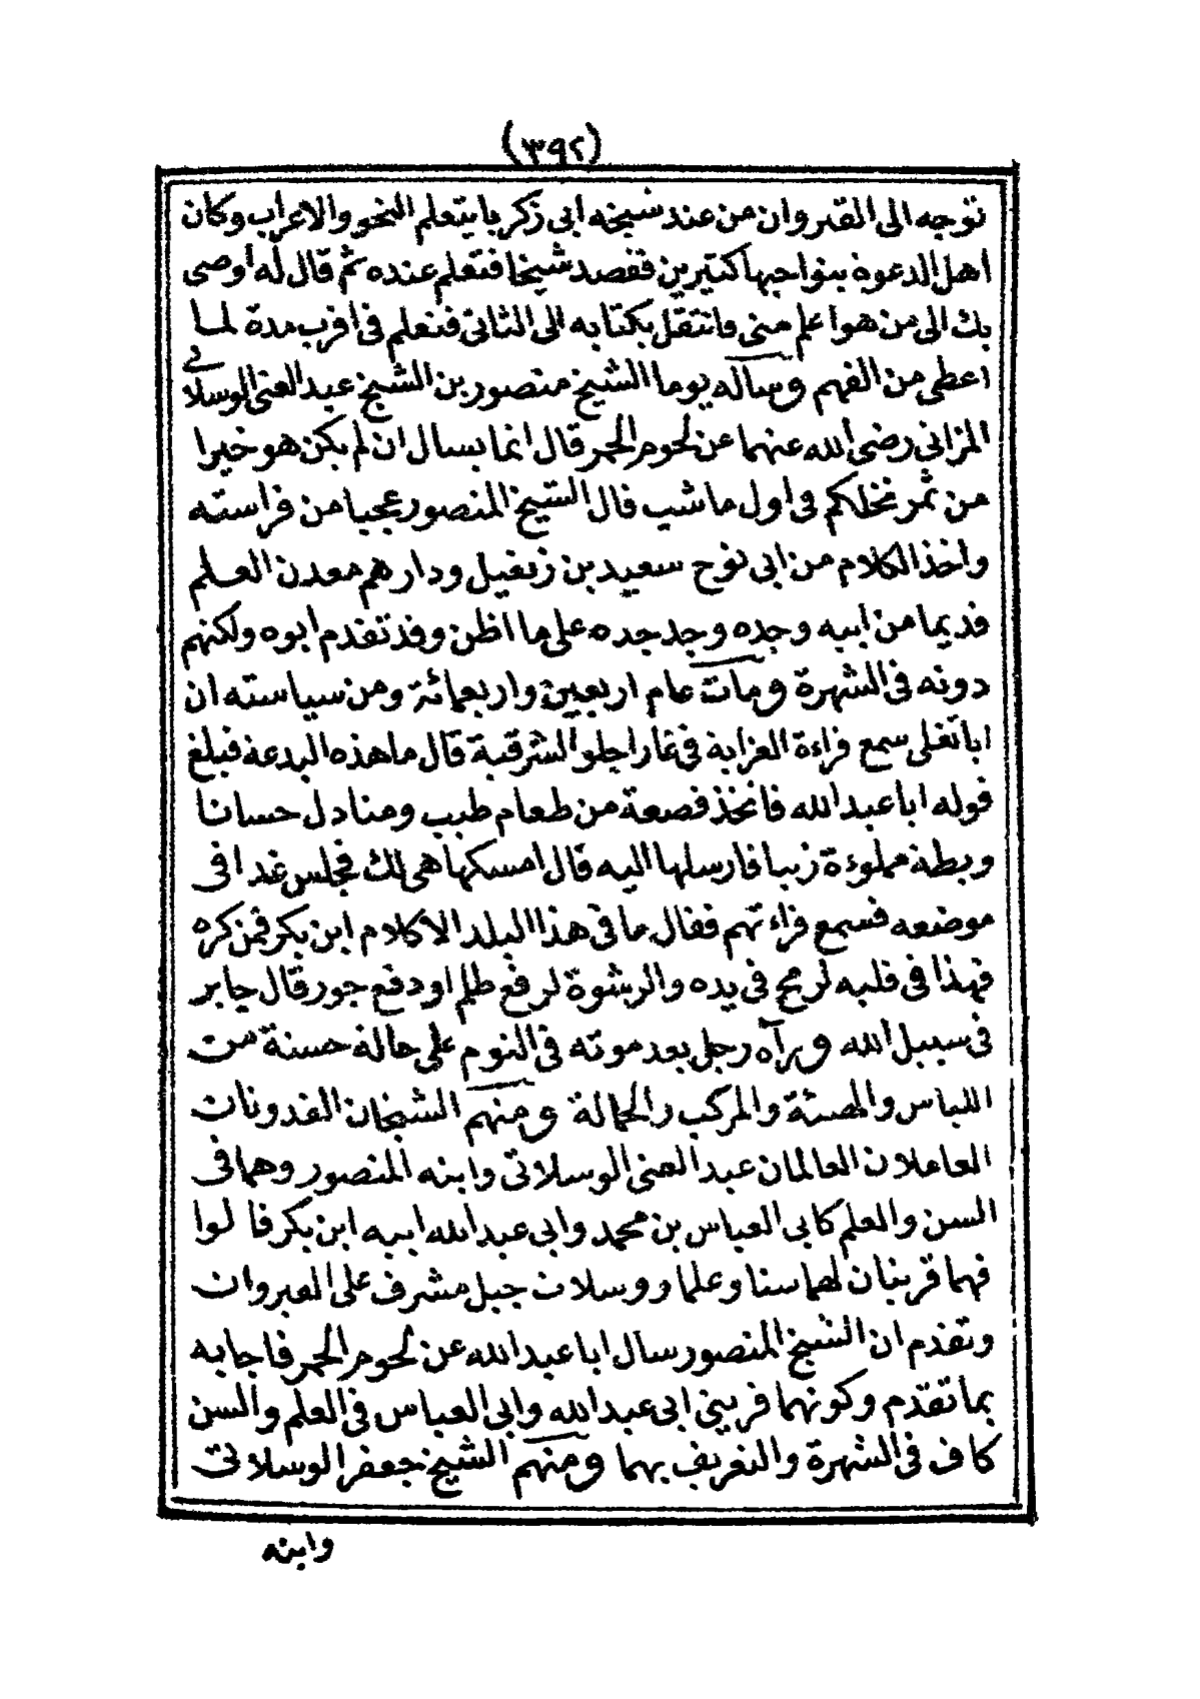 (٣٩٢)
توجه الى القيروان من عند شيخه ابى زكريا يتعلم النحو والاعراب وكان
اهل الدعوة بنواحيها كثيرين فقصد شيخا فتعلم عنده ثم قال له أوصى
بك الى من هو اعلم منى فانتقل بكتابه الى الثانى فتعلم فى اقرب مدة لما
اعطى من الفهم وساله يوما الشيخ منصور بن الشيخ عبد الغنى الوسلاتى
المزاتى رضى الله عنهما عن لحوم الحمر قال انما يسال ان لم يكن هو خيرا
من ثمر نخلكم فى اول ما شيب قال الشيخ المنصور عجبا من فراسته
واخذ الكلام من ابى نوح سعيد بن زنغيل ودارهم معدن العلم
قديما من ابيه وجده وجد جده على ما اظن وقد تقدم ابوه ولكنهم
دونه فى الشهرة ومات عام اربعين واربعمائة ومن سياسته ان
ابا تغلى سمع قراءة العزابة فى غار اجلو الشرقية قال ما هذه البدعة فبلغ
قوله ابا عبد الله فاتخذ قصعة من طعام طيب ومنادل حسانا
وبطة مملوءة زيتا فارسلها اليه قال امسكها هى لك فجلس غدا فى
موضعه فسمع قراءتهم فقال ما فى هذا البلد الا كلام ابن بكر فمن كره
فهذا فى قلبه لرمح فى يده والرشوة لرفع ظلم او دفع جور قال جابر
فى سبيل الله ورآه رجل بعد موته فى النوم على حالة حسنة من
اللباس والهيئة والمركب والحمالة ومنهم الشيخان القدوتان
العاملان العالمان عبد الغنى الوسلاتى وابنه المنصور وهما فى
السن والعلم كابى العباس بن محمد وابى عبد الله ابيه ابن بكر قالوا
فهما قرينان لهما سنا وعلما ووسلات جبل مشرف على القيروان
وتقدم ان الشيخ المنصور سال ابا عبد الله عن لحوم الحمر فاجابه
بما تقدم وكونهما قرينى ابى عبد الله وابى العباس فى العلم والسن
كاف فى الشهرة والتعريف بهما ومنهم الشيخ جعفر الوسلاتى
وابنه